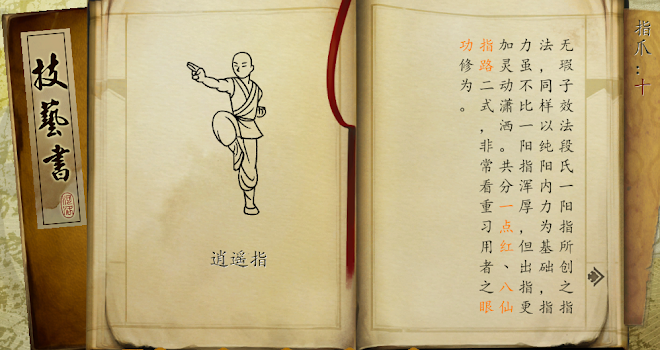 技藝書
逍遥指
无瑕子效法段氏一阳指所创之指
法，同样以纯阳内力为基础，指
力虽不比一阳指浑厚，但出指更
加灵动潇洒。共分一点红、八仙
指路二式，非常看重习用者之眼
功修为。
指爪：十